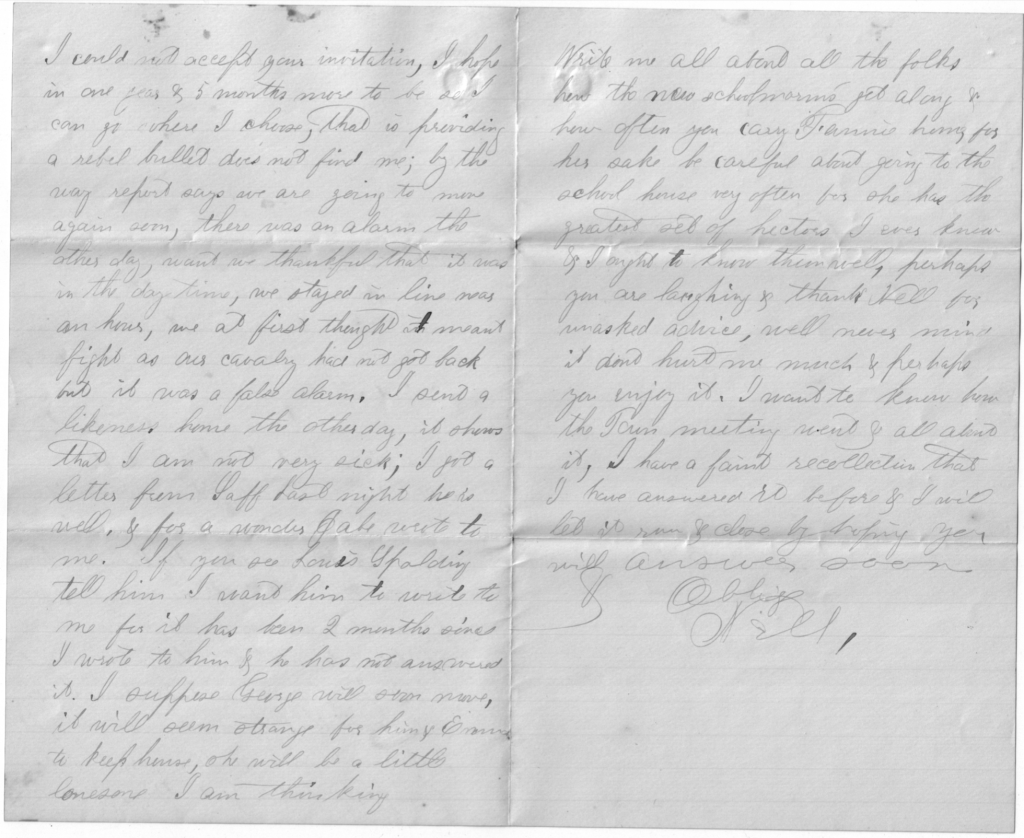 I could not accept your invitation, I hope
in one year & 5 months more to be so I
can go where I choose, that is providing
a rebel bullet does not find me; by the
way report says we are going to move
again soon, there was an alarm the
other day, want we thankful that it was
in the day time, we stayed in line near
an hour, we at first thought it meant
fight as our cavalry had not got back
but it was a false alarm. I send a
likeness home the other day, it shows
that I am not very sick; I got a
letter from Saff last night he is
well, & for a wonder Gabe wrote to
me. If you see Louis Spalding
tell him I want him to write to
me for it has been 2 months since
I wrote to him & he has not answered
it. I suppose George will soon move,
it will seem strange for him & Emma
to keep house, she will be a little
lonesome I am thinking
Write me all about all the folks
how the new schoolmarms get along &
how often you cary Fannie home, for
her sake be careful about going to the
school house very often for she has the
greatest set of hectors I ever knew
& I ought to know them well, perhaps
you are laughing & thank Nell for
unasked advice, well never mind
it dont hurt me much & perhaps
you enjoy it. I want to know how
the Town meeting went & all about
it, I have a faint recollection that
I have answered it before & I will
let it run & close by hoping you
will answer soon
& Oblige
Nell,